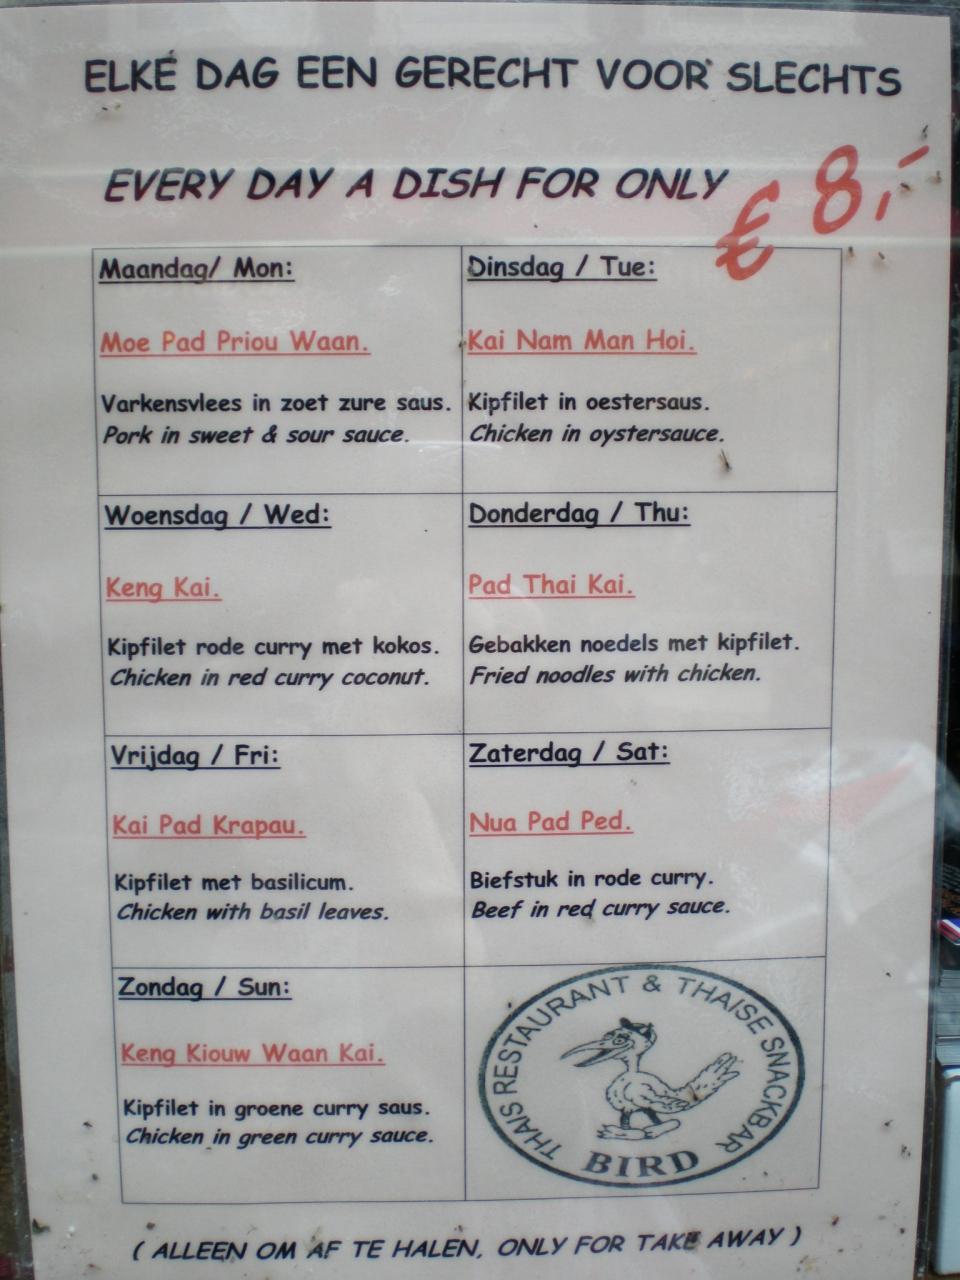 ELKE DAG EEN GERECHT VOOR SLECHTS
EVERY DAY A DISH FOR ONLY
€ 8,-
Maandag/ Mon:
Moe Pad Priou Waan.
Varkensvlees in zoet zure saus.
Pork in sweet & sour sauce.
Dinsdag / Tue:
Kai Nam Man Hoi.
Kipfilet in oestersaus.
Chicken in oystersauce.
Woensdag / Wed:
Keng Kai.
Kipfilet rode curry met kokos.
Chicken in red curry coconut.
Donderdag / Thu:
Pad Thai Kai.
Gebakken noedels met kipfilet.
Fried noodles with chicken.
Vrijdag / Fri:
Kai Pad Krapau.
Kipfilet met basilicum.
Chicken with basil leaves.
Zaterdag / Sat:
Nua Pad Ped.
Biefstuk in rode curry.
Beef in red curry sauce.
Zondag / Sun:
Keng Kiouw Waan Kai.
Kipfilet in groene curry saus.
Chicken in green curry sauce.
THAIS RESTAURANT & THAISE SNACKBAR
BIRD
( ALLEEN OM AF TE HALEN, ONLY FOR TAKE AWAY )